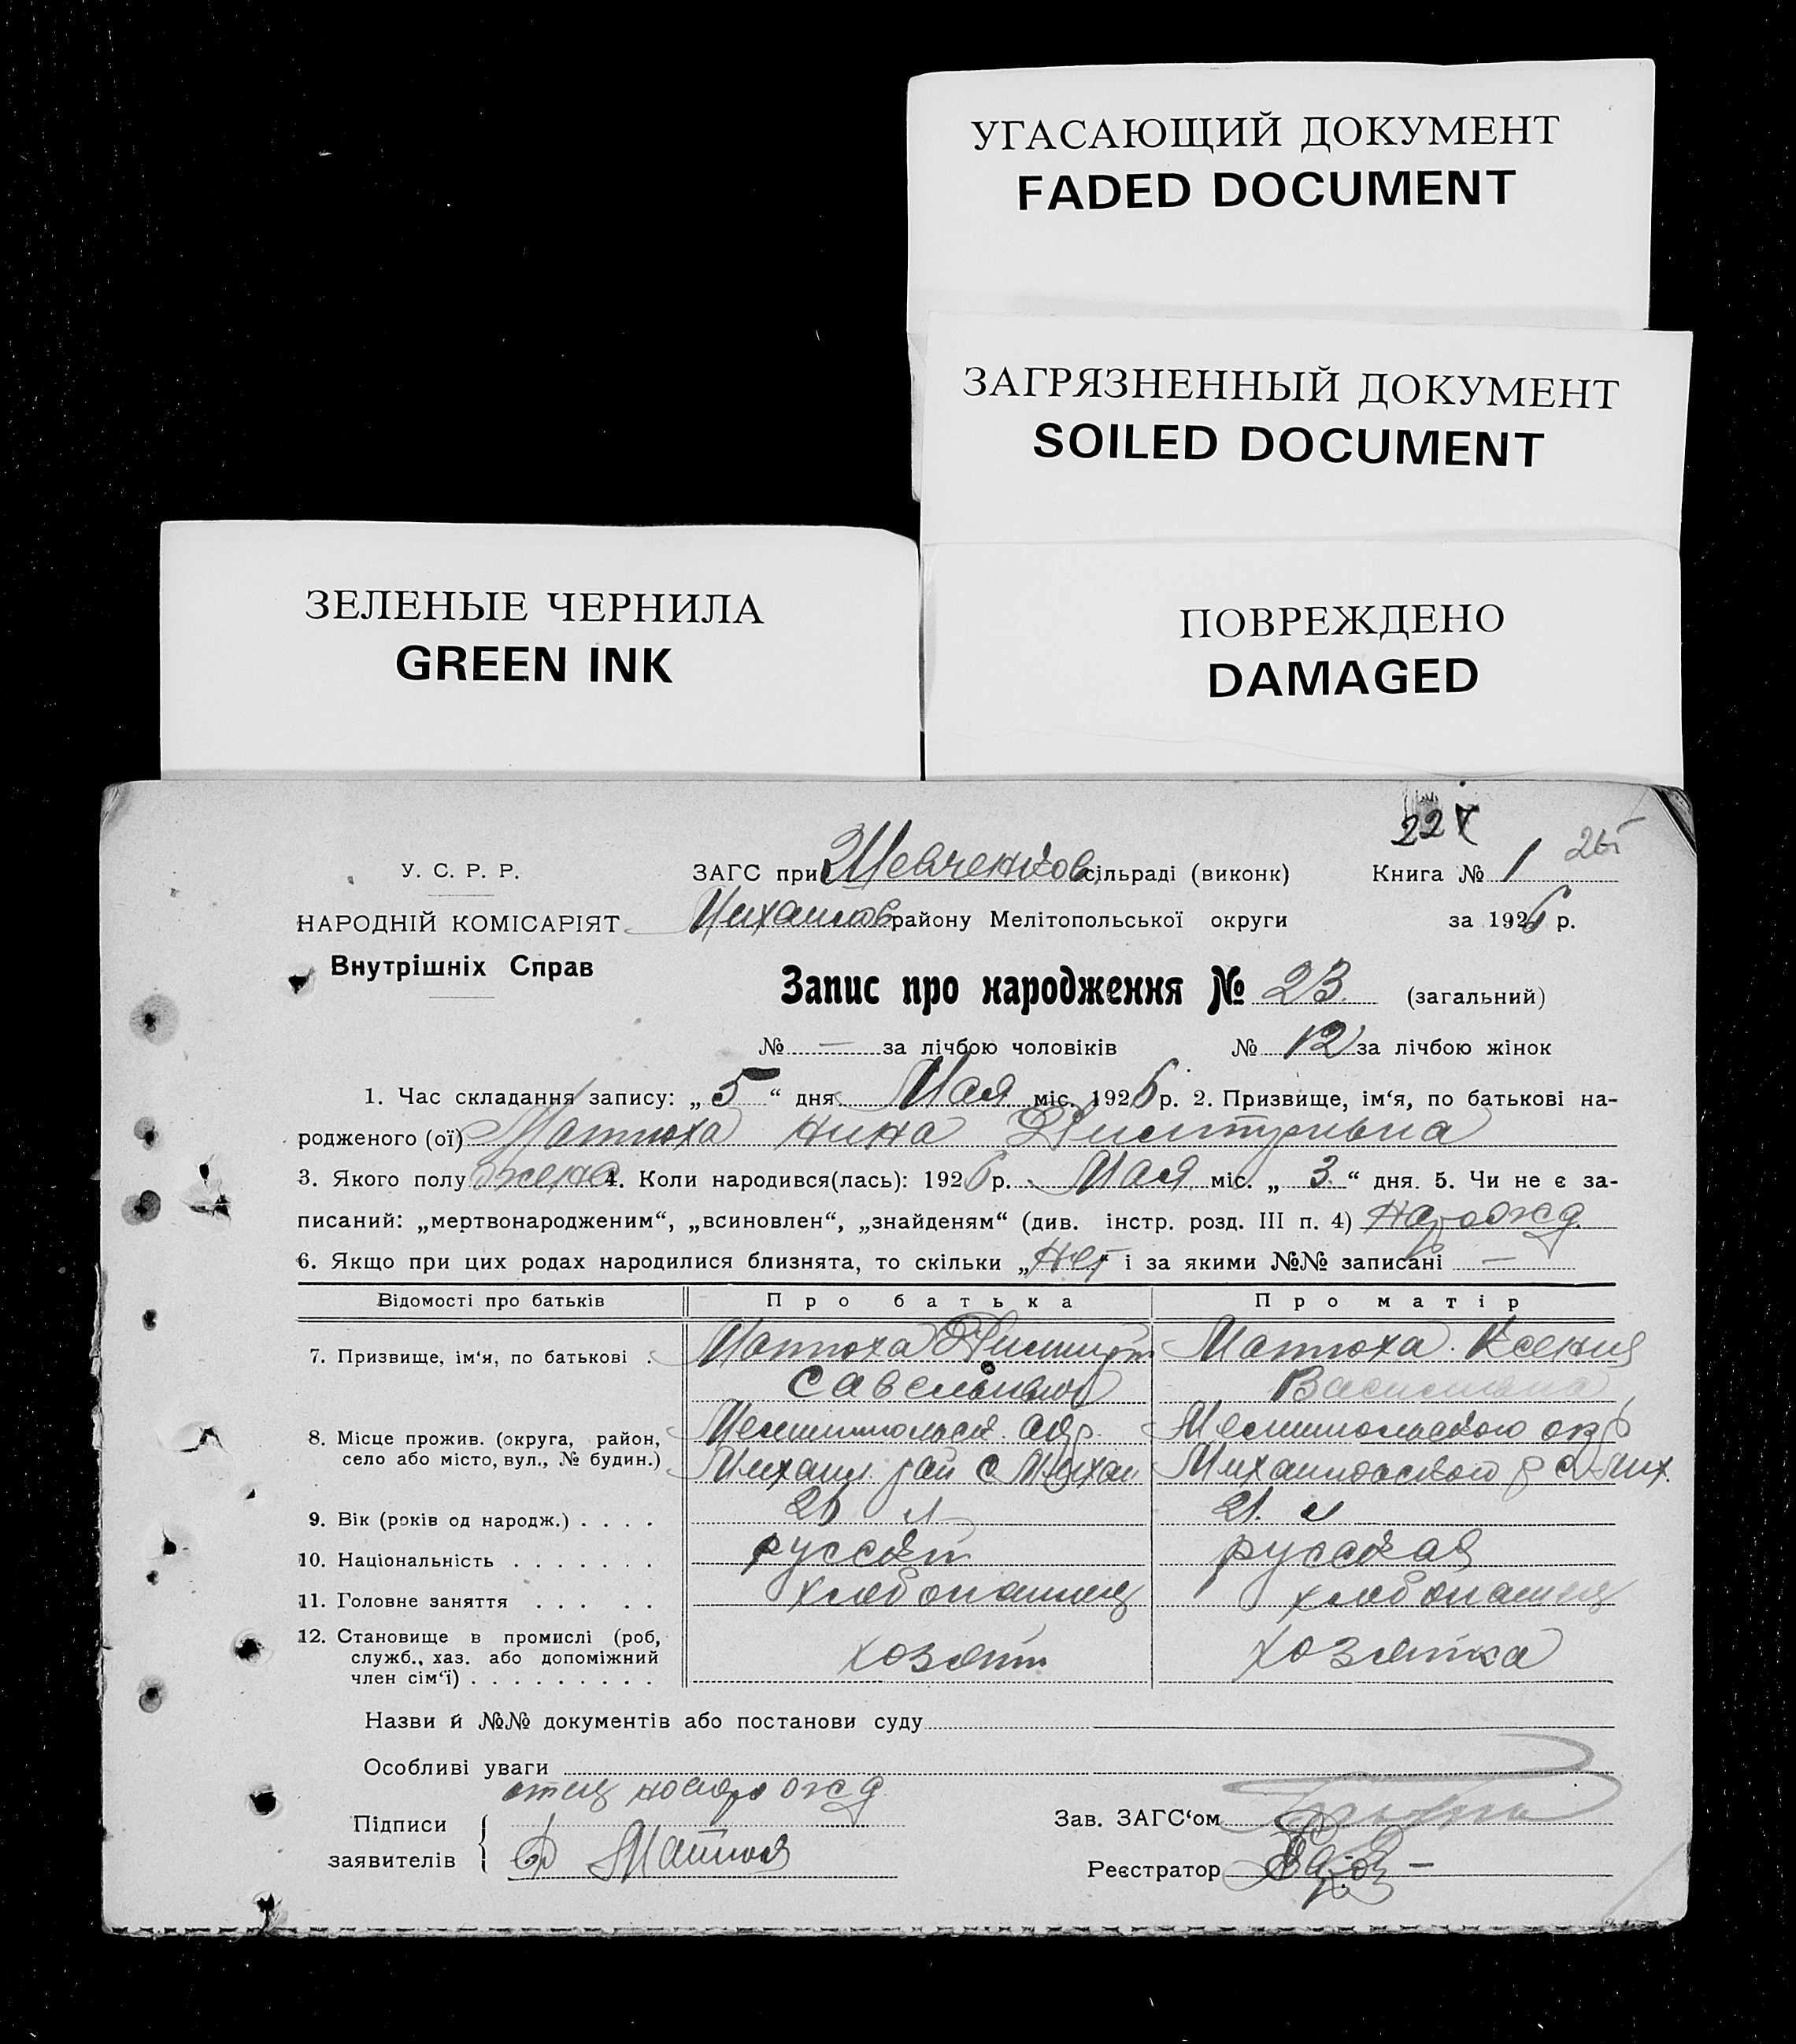 УГАСАЮЩИЙ ДОКУМЕНТ
FADED DOCUMENT
ЗАГРЯЗНЕННЫЙ ДОКУМЕНТ
SOILED DOCUMENT
ЗЕЛЕНЫЕ ЧЕРНИЛА
GREEN INK
ПОВРЕЖДЕНО
DAMAGED
227
У. С. Р. Р. ЗАГС при Шевченков сільраді (виконк) Книга № 1
НАРОДНІЙ КОМІСАРІЯТ Михайлов району Мелітопольської округи за 1926 р.
Внутрішніх Справ
Запис про народження № 23 (загальний)
№ — за лічбою чоловіків № 12 за лічбою жінок
1. Час складання запису: „5“ дня Мая міс. 1926 р. 2. Призвище, ім‘я, по батькові на-
родженого (ої) Матюха Нина Дмитриевна
3. Якого полу жен 4. Коли народився(лась): 1926 р. Мая міс. „3“ дня. 5. Чи не є за-
писаний: „мертвонародженим“, „всиновлен“, „знайденям“ (див. інстр. розд. III п. 4)
6. Якщо при цих родах народилися близнята, то скільки „Нет“ і за якими №№ записані —
Відомості про батьків Про батька Про матір
7. Призвище, ім‘я, по батькові . Матюха Дмитрий Матюха Ксения
Савельевич Васильевна
8. Місце прожив. (округа, район, Мелитопольск. окр. Мелитопольского окр
село або місто, вул., № будин.) Михайл. рай с Михай Михайловского р с Мих.
9. Вік (років од народж.) . . . . л 21. л
10. Національність . . . . . . . русский русская
11. Головне заняття . . . . . хлебопашец хлебопашец
12. Становище в промислі (роб, хозяин хозяйка
служб., хаз. або допоміжний
член сім‘ї) . . . . . . . . .
Назви й №№ документів або постанови суду
Особливі уваги
отец
Підписи Зав. ЗАГС‘ом
заявителів Матюха Реєстратор